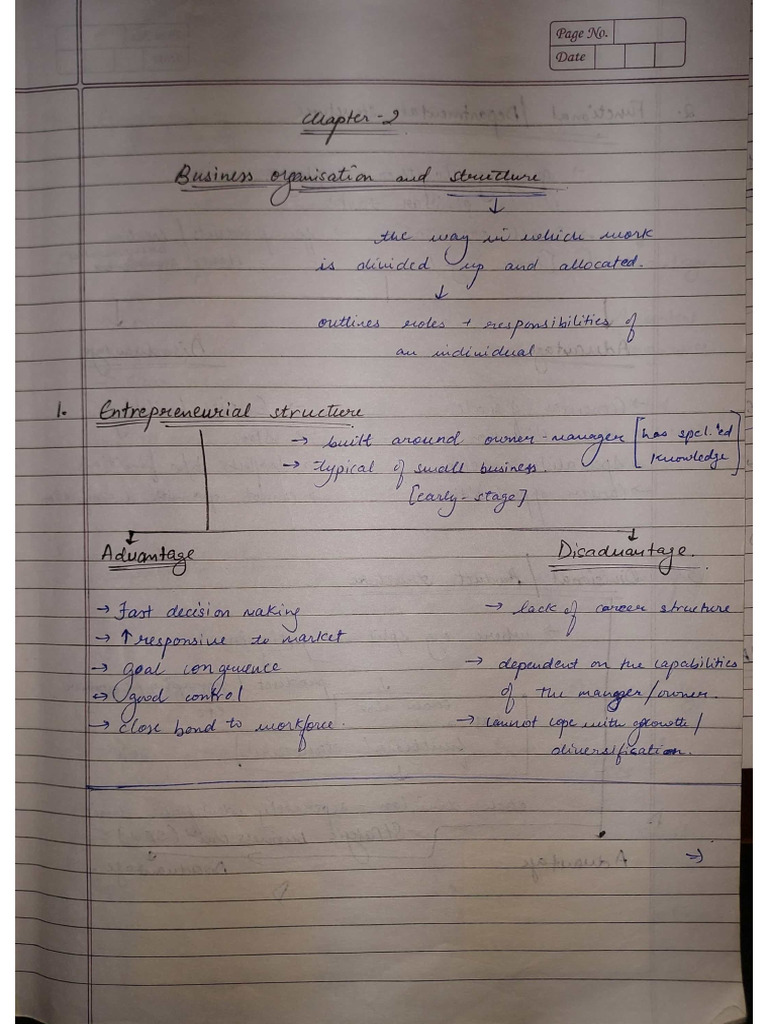 Page No.
Date
Chapter-2
Business organisation and structure
↓
the way in which work
is divided up and allocated.
↓
outlines roles + responsibilities of
an individual
1. Entrepreneurial structure
→ built around owner-manager [has spcl.'ed
knowledge]
→ typical of small business.
[early-stage]
Advantage
→ Fast decision making
→ ↑ responsive to market
→ goal congruence
→ good control
→ close bond to workforce.
Disadvantage.
→ lack of career structure
→ dependent on the capabilities
of the manager/owner.
→ cannot cope with growth/
diversification.
⇒